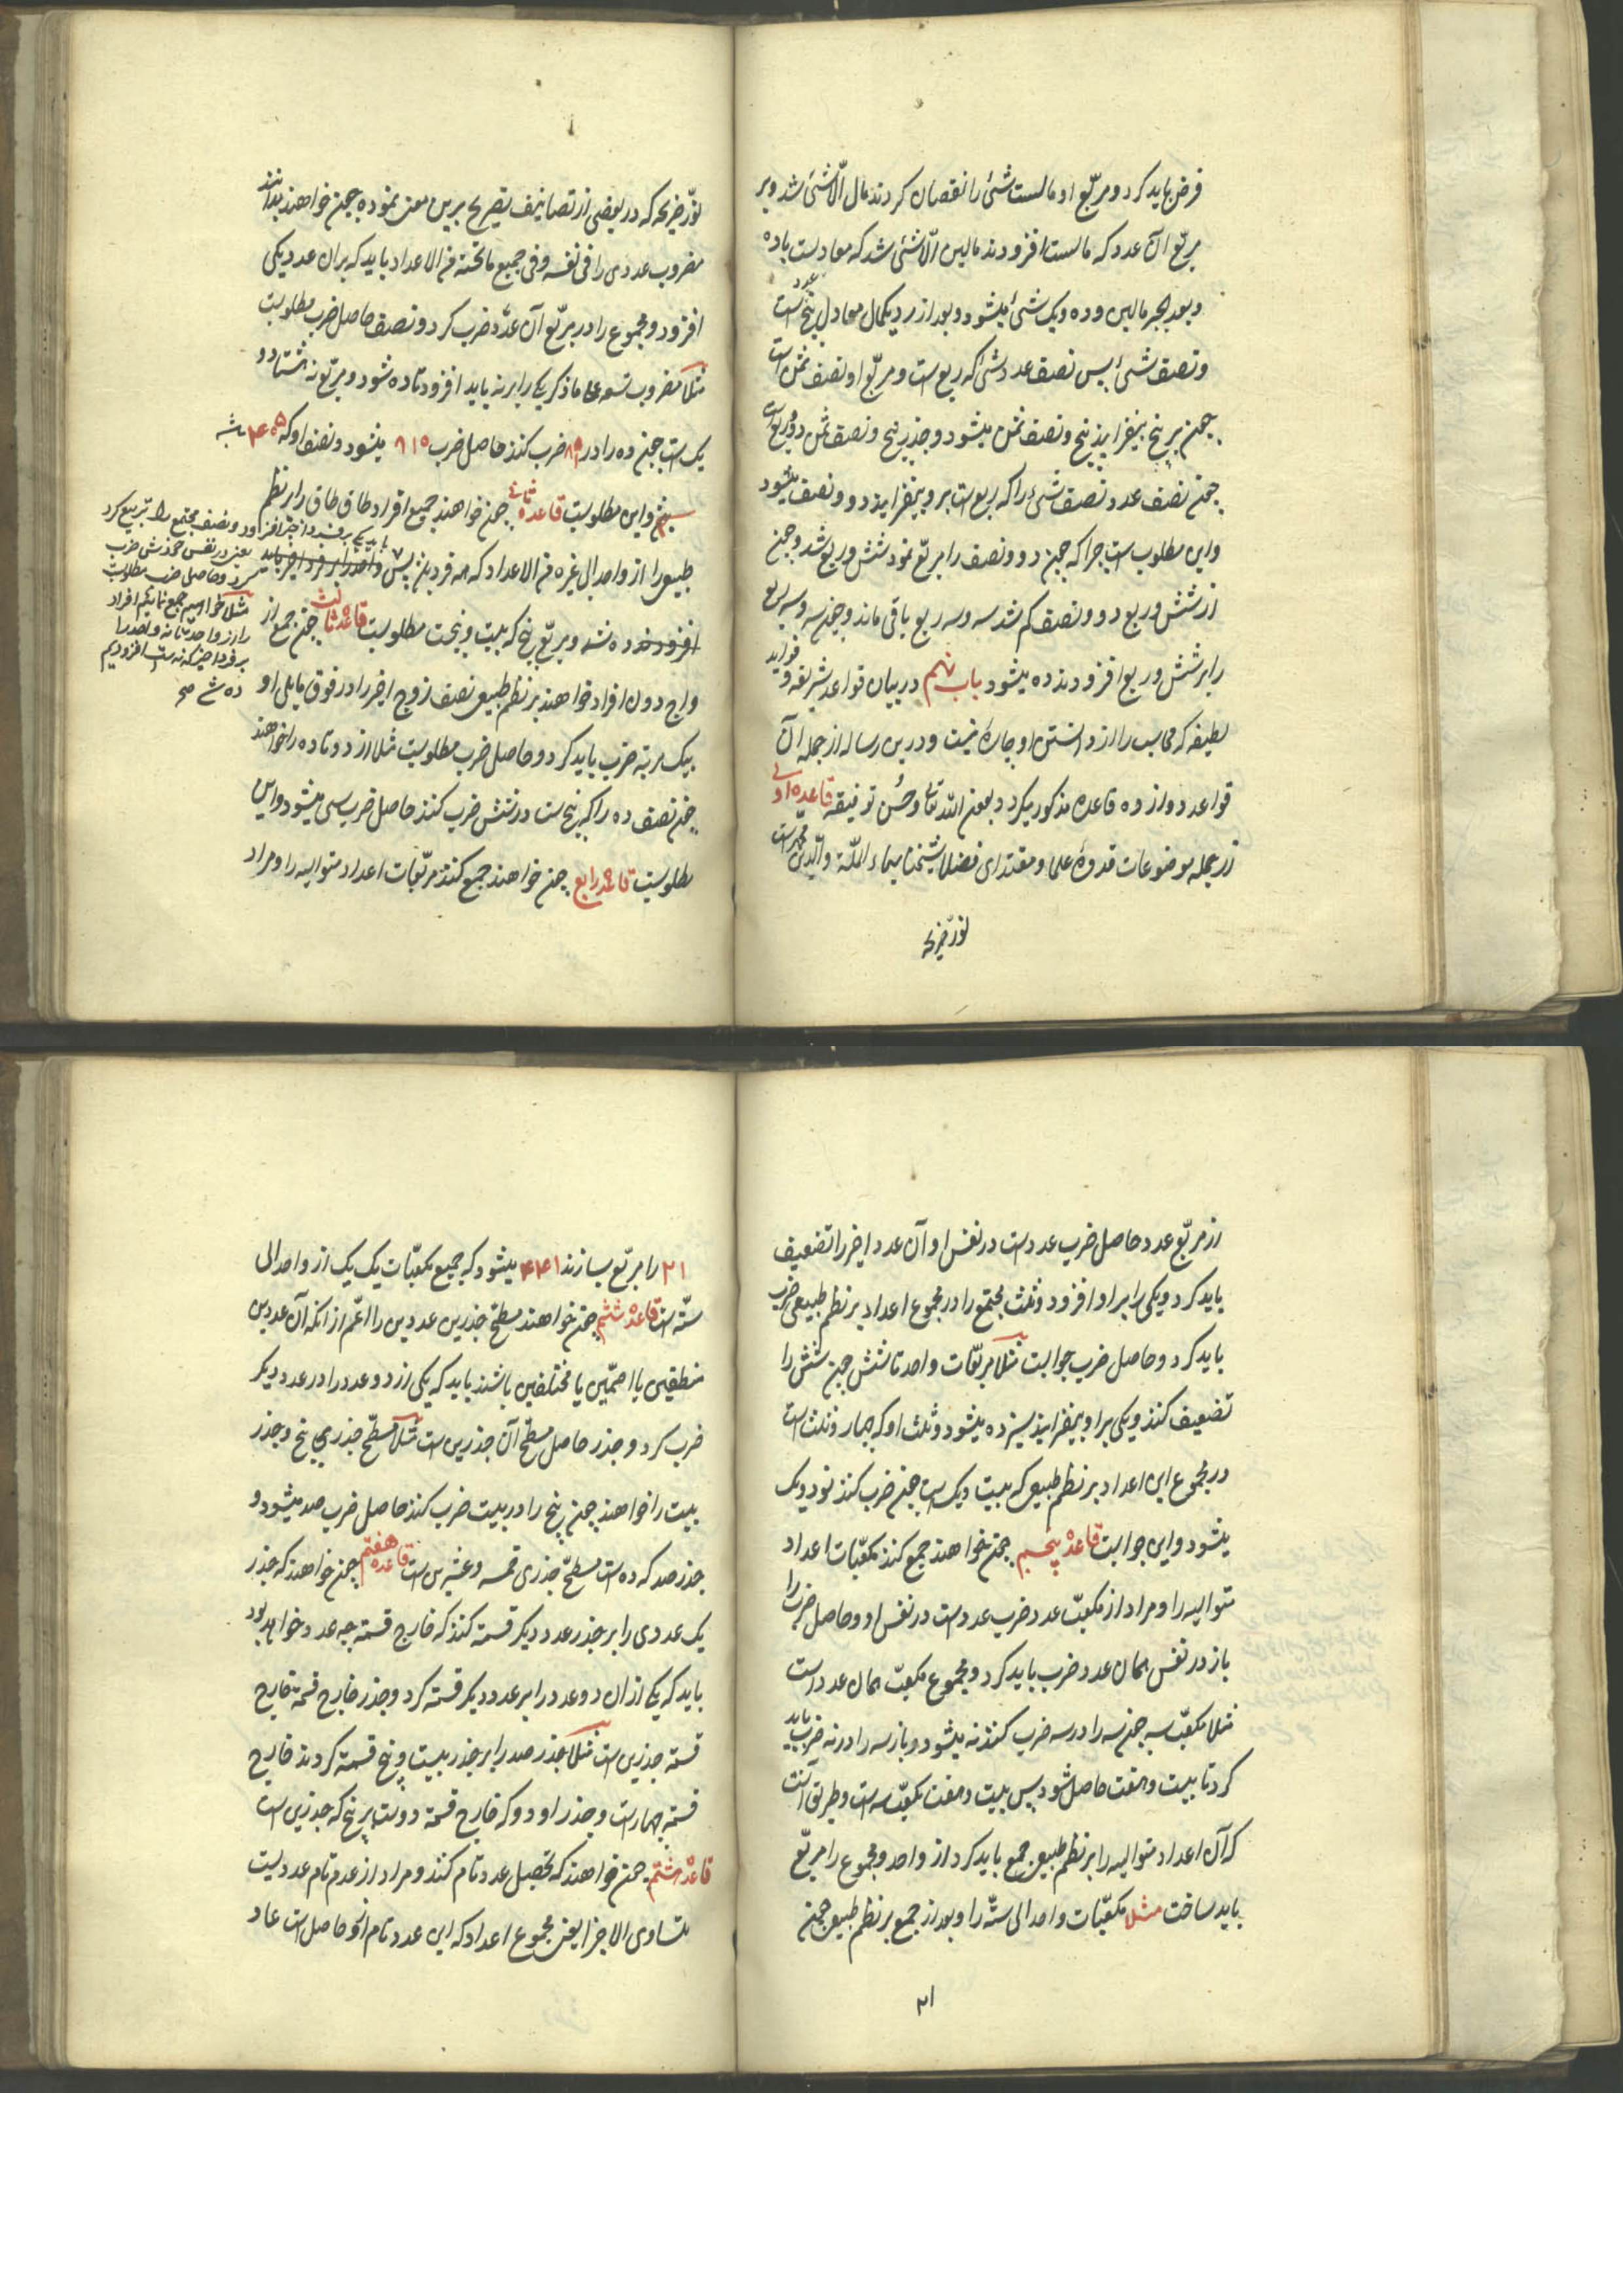 فرض باید کرد و مربّع او مالست شئ را نقصان کردند مال الّا شئ شد و بر
مربّع آن عدد که مالست افزودند مالین الّا شئ شد که معادلست با ده
و بعد الجبر مالین و ده و یک شئ میشود و بعد از رد یکمال معادل پنج عدد است
و نصف شئ پس نصف عدد شئ که ربع است و مربّع او نصف ثمن است
چون بر پنج بیفزایند پنج و نصف ثمن میشود و جذر پنج و نصف ثمن دو و ربع است
چون نصف عدد نصف شئ را که ربع است برو بیفزایند دو و نصف میشود
و این مطلوب است چرا که چون دو و نصف را مربّع نمود شش و ربع شد و چون
از شش و ربع دو و نصف کم شد سه و سه ربع باقی ماند و چون سه و سه ربع
را بر شش و ربع افزودند ده میشود باب نهم در بیان قواعد شریفه و فواید
لطیفه که محاسب را از دانستن او چاره نیست و درین رساله از جمله آن
قواعد دوازده قاعده مذکور میکردد بعون اللّه تعالی و حسن توفیقه قاعده اولی
از جمله موضوعات قدوهٔ علما و مقتدای فضلا شیخنا بهاء الملّة والدّین محمد است
نوّر ضریحه
نوّر ضریحه که در بعضی از تصانیف تصریح برین معنی نموده چون خواهند بدانند
مضروب عددی را فی نفسه و فی جمیع ما تحته من الاعداد باید که بران عدد یکی
افزود و مجموع را در مربّع آن عدد ضرب کرد و نصف حاصل ضرب مطلوبست
مثلا مضروب تسعه علی ما ذکر یکی را بر نه باید افزود تا ده شود و مربّع نه هشتاد و
یک است چون ده را در ۸۱ ضرب کنند حاصل ضرب ۸۱۰ میشود و نصف او که ۴۰۵ باشد
و این مطلوبست قاعده ثانی چون خواهند جمیع افراد طاق طاق را بر نظم
طبیعی را از واحد الی غیره من الاعداد که همه فرد بود پس واحد را بر فرد اخیر باید
افزود ده شد و مربّع پنج که بیست و پنجست مطلوبست قاعده ثالث چون جمع از
واج دون افراد خواهند بر نظم طبیعی نصف زوج اخیر را در فوق ما یلی او
بیک مرتبه ضرب باید کرد و حاصل ضرب مطلوبست مثلا از دو تا ده را خواهند
چون نصف ده را که پنج است در شش ضرب کنند حاصل ضرب سی میشود و این
مطلوبست قاعده رابع چون خواهند جمع کنند مربّعات اعداد متوالیه را و مراد
باید یکی بر فرد اخیر افزود و نصف مجتمع را تربیع کرد
یعنی در نفس خودش ضرب
کرد و حاصل ضرب مطلوبست
مثلا خواسیم جمع نماییم افراد
را از واحد تا نه واحد را
بر فرد اخیر که نه است افزودیم
ده شد صح
از مربّع عدد حاصل ضرب عدد است در نفس او آن عدد اخیر را تضعیف
باید کرد و یکی را بر او افزود و ثلث مجتمع را در مجموع اعداد بر نظم طبیعی ضرب
باید کرد و حاصل ضرب جوابست مثلا مربّعات واحد تا شش چون شش را
تضعیف کنند و یکی بر او بیفزایند سیزده میشود و ثلث او که چهار و ثلث است
در مجموع این اعداد بر نظم طبیعی که بیست و یک است چون ضرب کنند نود و یک
میشود و این جوابست قاعده پنجم چون خواهند جمع کنند مکعّبات اعداد
متوالیه را و مراد از مکعّب عدد ضرب عدد است در نفس او و حاصل ضرب را
باز در نفس همان عدد ضرب باید کرد و مجموع مکعّب همان عدد است
مثلا مکعّب سه چون سه را در سه ضرب کنند نه میشود و باز سه را در نه ضرب باید
کرد تا بیست و هفت حاصل شود پس بیست و هفت مکعّب سه است و طریق آنست
که آن اعداد متوالیه را بر نظم طبیعی جمع باید کرد از واحد و مجموع را مربّع
باید ساخت مثلا مکعّبات واحد الی ستّه را و بعد از جمع بر نظم طبیعی چون
۲۱
۲۱ را مربّع سازند ۴۴۱ میشود که جمیع مکعّبات یک یک از واحد الی
ستّه است قاعده ششم چون خواهند مسطّح جذرین عددین را اعّم از انکه آن عددین
منطقین یا اصمّین یا مختلفین باشند باید که یکی از دو عدد را در عدد دیکر
ضرب کرد و جذر حاصل مسطّح آن جذرین است مثلا مسطّح جذری پنج و جذر
بیست را خواهند چون پنج را در بیست ضرب کنند حاصل ضرب صد میشود و
جذر صد که ده است مسطّح جذری خمسه و عشرین است قاعده هفتم چون خواهند که جذر
یک عددی را بر جذر عدد دیکر قسمة کنند که خارج قسمة چه عدد خواهد بود
باید که یکی از ان دو عدد را بر عدد دیکر قسمة کرد و جذر خارج قسمة خارج
قسمة جذرین است مثلا جذر صد را بر جذر بیست و پنج قسمة کردند خارج
قسمة چهار است و جذر او دو که خارج قسمة دو است بر پنج که جذرین است
قاعده هشتم چون خواهند که تحصیل عدد تام کنند و مراد از عدم تام عددیست
متساوی الاجزا یعنی مجموع اعداد که این عدد تام ازو حاصل است عاد